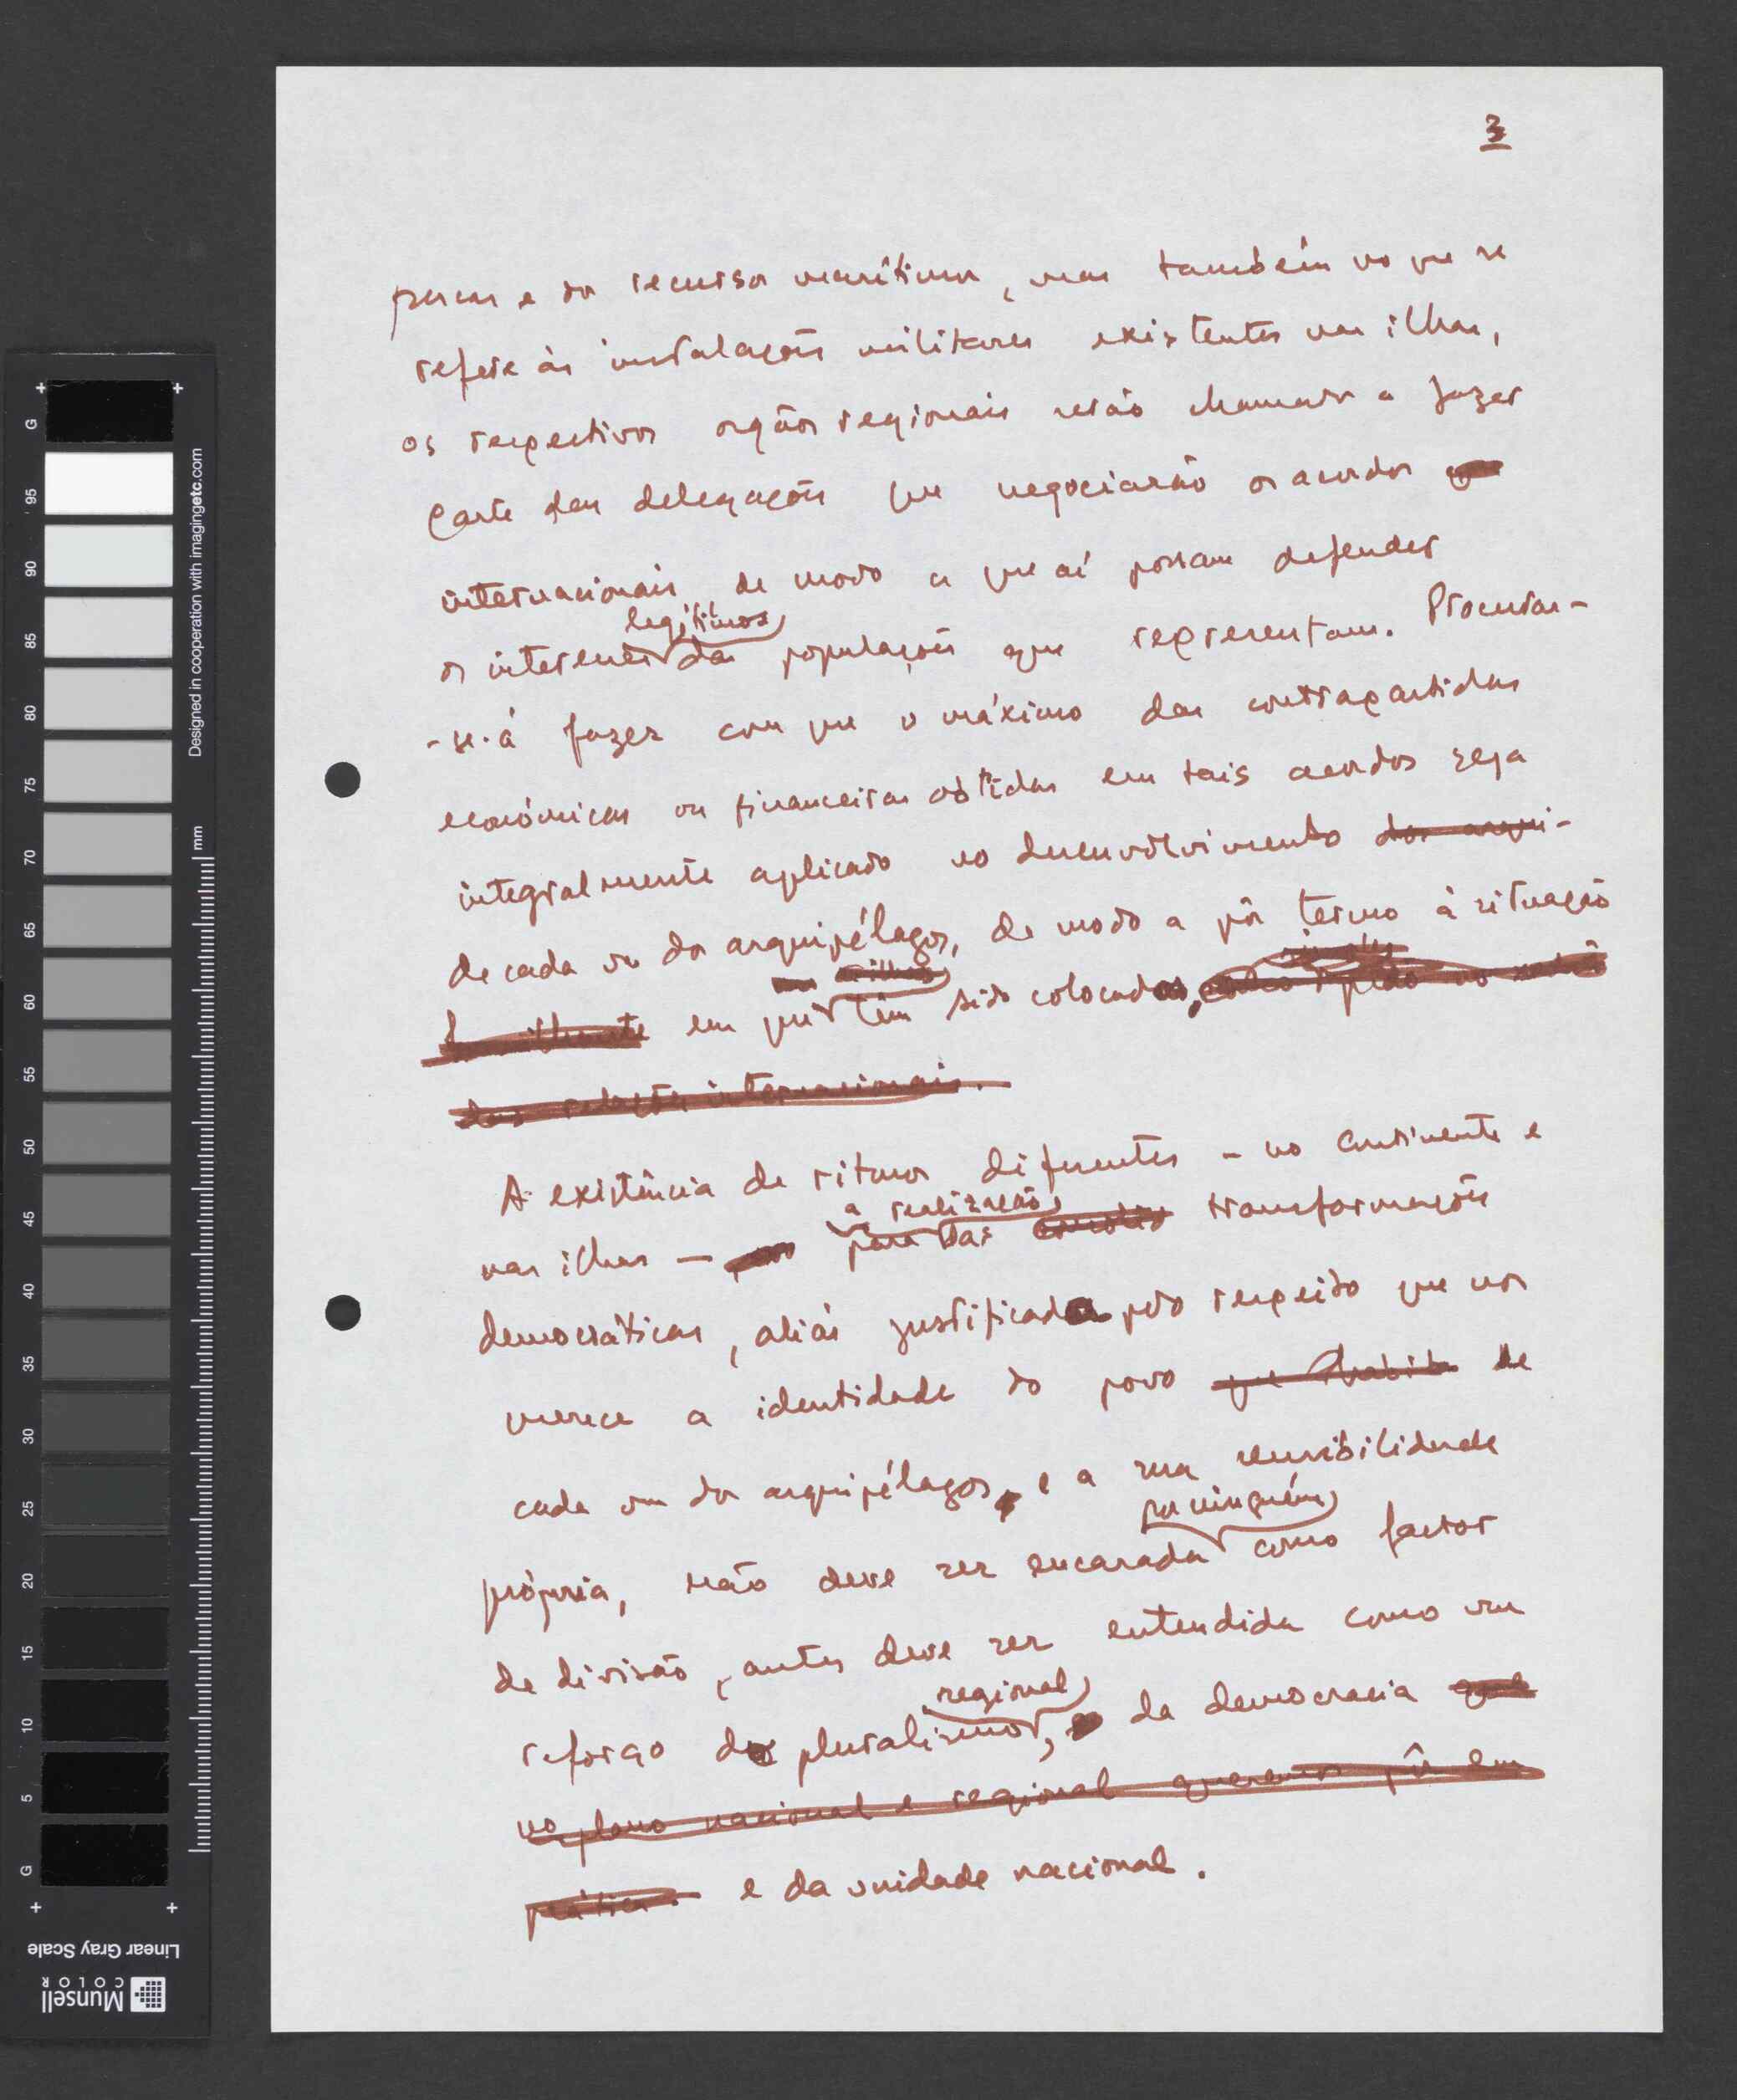 3
pescas e dos recursos marítimos, mas também no que se
refere às instalações militares existentes nas ilhas,
os respectivos orgãos regionais serão chamados a fazer
parte das delegações que negociarão os acordos
internacionais, de modo a que aí possam defender
legítimos
os interesses das populações que representam. Procurar-
-se-á fazer com que o máximo das contrapartidas
económicas ou financeiras obtidas em tais acordos seja
integralmente aplicado no desenvolvimento dos arqui-
de cada um dos arquipélagos, de modo a pôr termo à situação
as ilhas
em que têm sido colocadas,
das relações internacionais.
A existência de ritmos diferentes - no Continente e
a realização
nas ilhas — para das transformações
democráticas, aliás justificada pelo respeito que nos
merece a identidade do povo que habita de
cada um dos arquipélagos, e a sua sensibilidade
por ninguém
própria, não deve ser encarada como factor
de divisão, antes deve ser entendida como um
regional
reforço do pluralismo, da democracia que
no plano nacional e regional queremos pôr em
prática. e da unidade nacional.
Designed in cooperation with imagingetc.com
mm
G 95 90 85 80 75 70 65 60 55 50 45 40 35 30 25 20 15 10 5 G
Linear Gray Scale
Munsell
COLOR